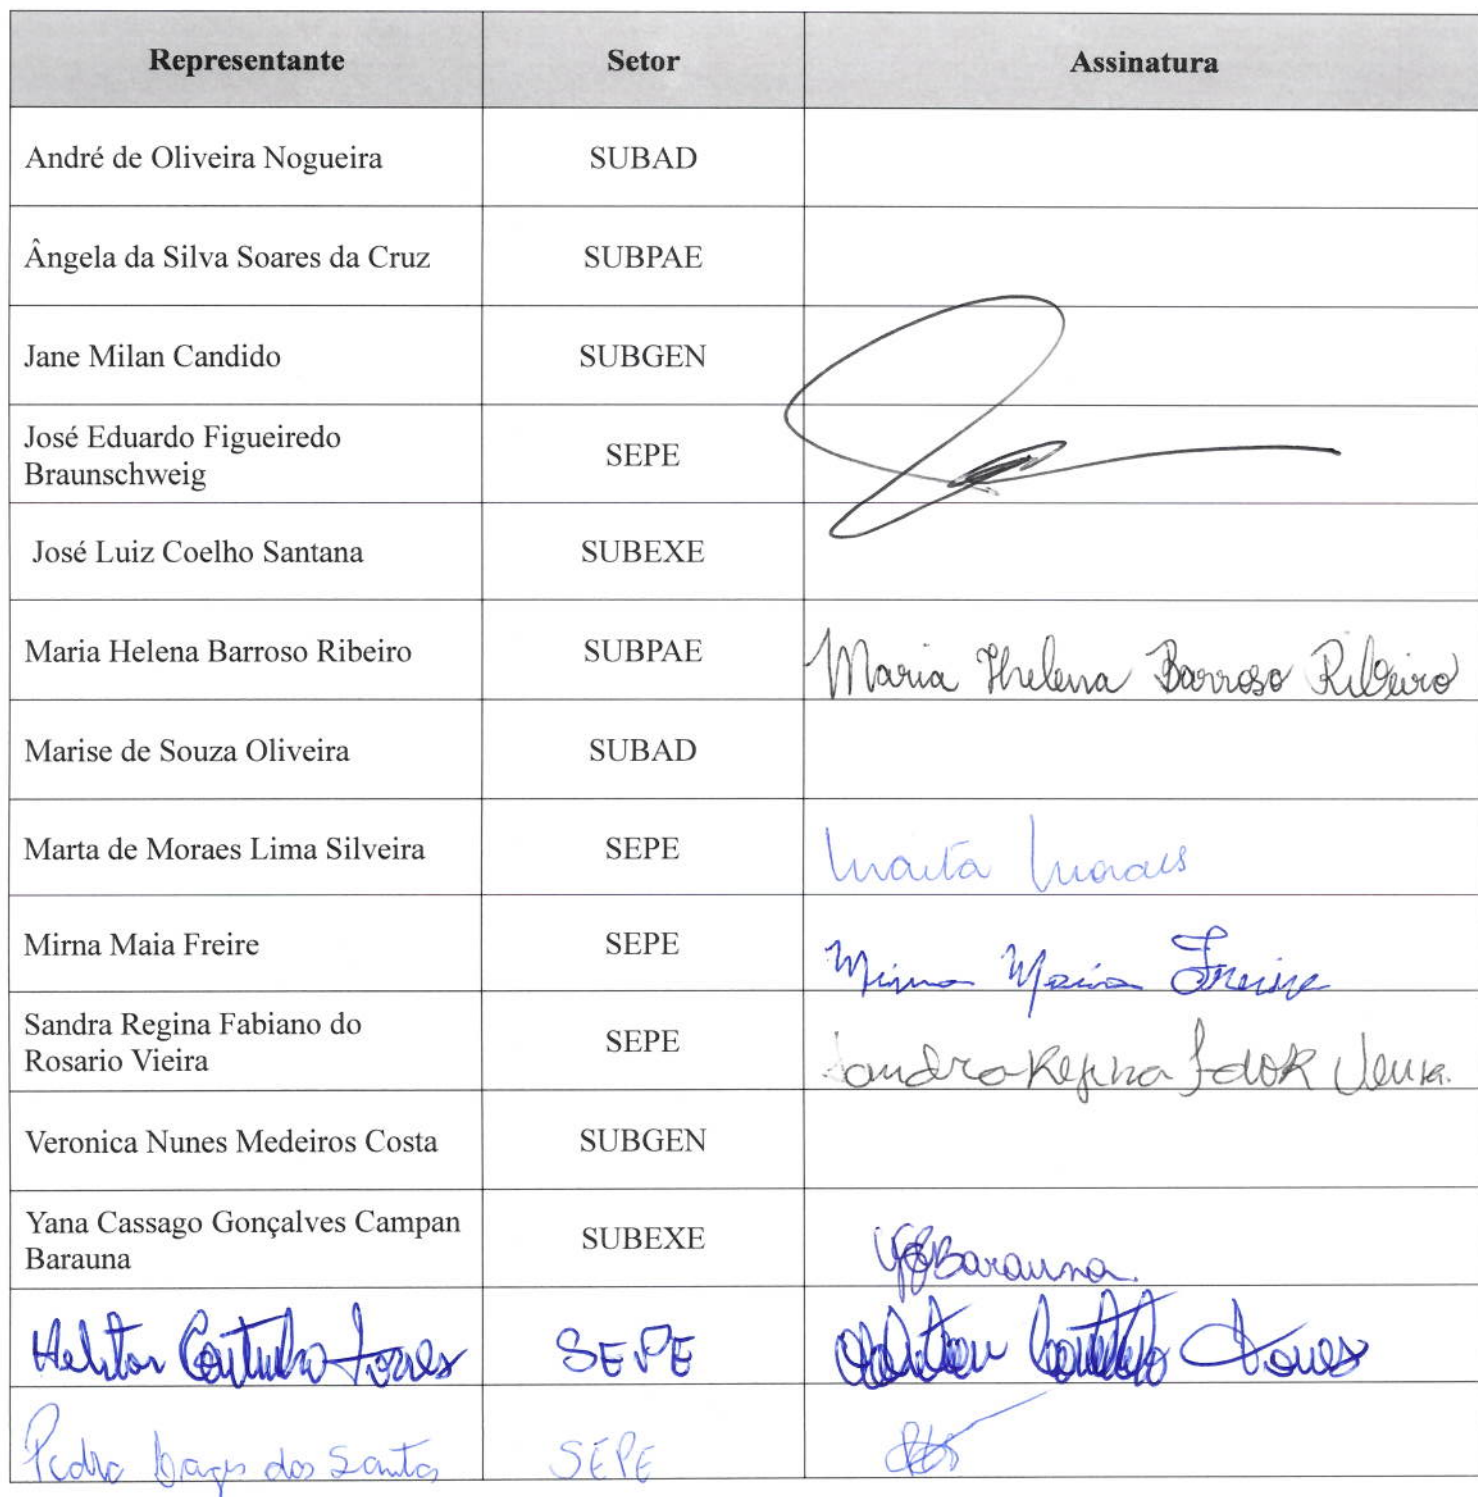 Representante Setor Assinatura
André de Oliveira Nogueira SUBAD
Ângela da Silva Soares da Cruz SUBPAE
Jane Milan Candido SUBGEN
José Eduardo Figueiredo
Braunschweig SEPE
José Luiz Coelho Santana SUBEXE
Maria Helena Barroso Ribeiro SUBPAE Maria Helena Barroso Ribeiro
Marise de Souza Oliveira SUBAD
Marta de Moraes Lima Silveira SEPE Marta Moraes
Mirna Maia Freire SEPE Mirna Maia Freire
Sandra Regina Fabiano do
Rosario Vieira SEPE Sandra Regina Vieira
Veronica Nunes Medeiros Costa SUBGEN
Yana Cassago Gonçalves Campan
Barauna SUBEXE Barauna
Coutinho Torres SEPE Coutinho Torres
Pedro dos Santos SEPE